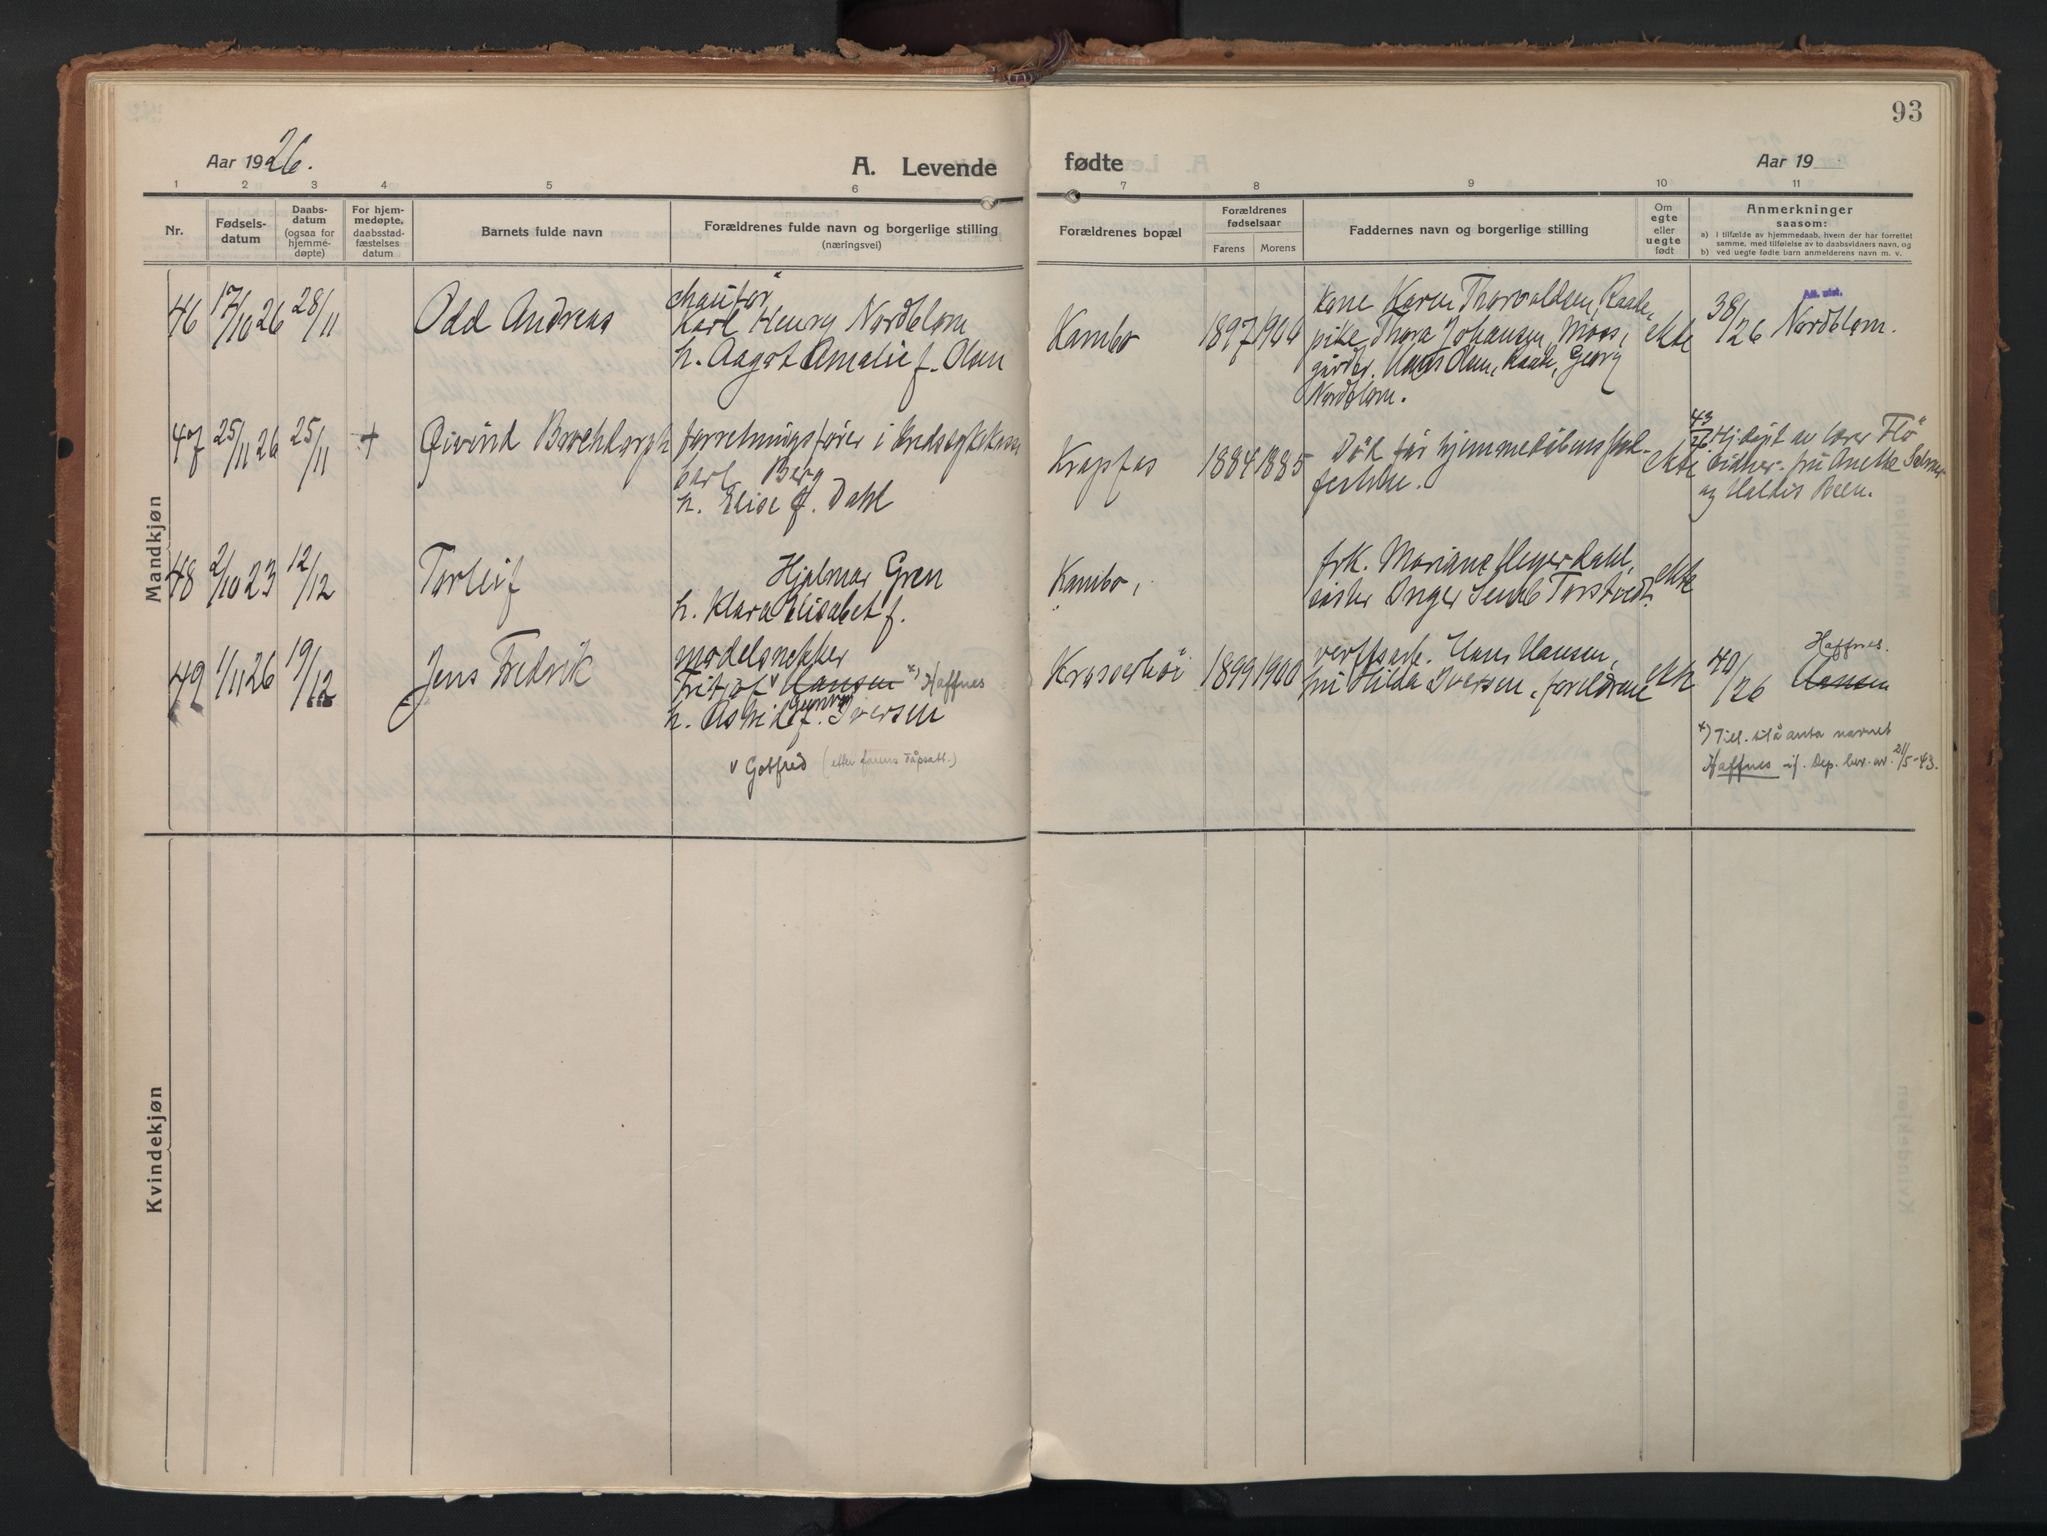 93
Aar 1926.
A. Levende
fødte
Aar 19
1 2 3 4 5 6 7 8 9 10 11
Nr.
Fødsels-
datum
Daabs-
datum
(ogsaa for
hjemme-
døpte)
For hjem-
medøpte,
daabsstad-
fæstelses
datum
Barnets fulde navn
Forældrenes fulde navn og borgerlige stilling
(næringsvei)
Forældrenes bopæl
Forældrenes
fødselsaar
Farens Morens
Faddernes navn og borgerlige stilling
Om
egte
eller
uegte
født
Anmerkninger
saasom:
a) I tilfælde av hjemmedaab, hvem der har forrettet
samme, med tilføielse av to daabsvidners navn, og
b) ved uegte fødte barn anmelderens navn m. v.
Mandkjøn
46 17/10 26 28/11 Odd Andreas
chauffør
Karl Henry Nordblom
h. Aagot Amalie f. Olsen
Kambo 1897 1904
kone Karen Thorvaldsen, Raade,
pike Thora Johansen, Moss,
gårdbr. Hans Olsen, Raade, Georg
Nordblom.
ekte 38/26 Nordblom.
47 25/11 26 25/11 +
Øivind
forretningsfører i kredssykekassen
Carl Berg
h. Elise f. Dahl
Krapfos 1884 1885
Död før hjemmedåbens stad-
festelse.
ekte 43/26 Hj. døpt av lærer Flö
vidner: fru Anette
og Haldis Been.
48 2/10 23 12/12 Torleif
Hjalmar Gren
h. Klara Elisabet f.
Kambo,
frk. Mariane Heyerdahl,
søster Inger Semb Torstvedt.
ekte
49 1/11 26 19/12 Jens Fredrik
modelsnekker
Fritjof v Hansen x) Haffnes
Gunvor
h. Astrid f. Iversen
v Gotfred (etter farens dåpsatt.)
1899 1900
verftsarb. Hans Hansen,
fru Hilda Iversen, foreldrene
ekte 40/26
Haffnes.
Hansen
x) Till. til å anta navnet
Haffnes if. Dep. bev. av 21/5-43.
Kvindekjøn